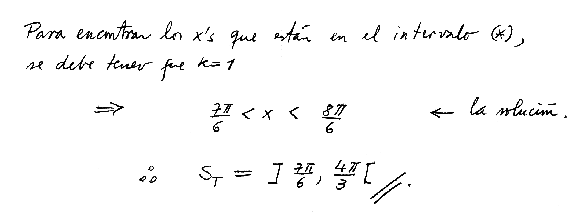 Para encontrar los x's que están en el intervalo (*),
se debe tener que k=1
⇒ 7π/6 < x < 8π/6 ← la solución.
∴ S_T = ] 7π/6 , 4π/3 [ //.